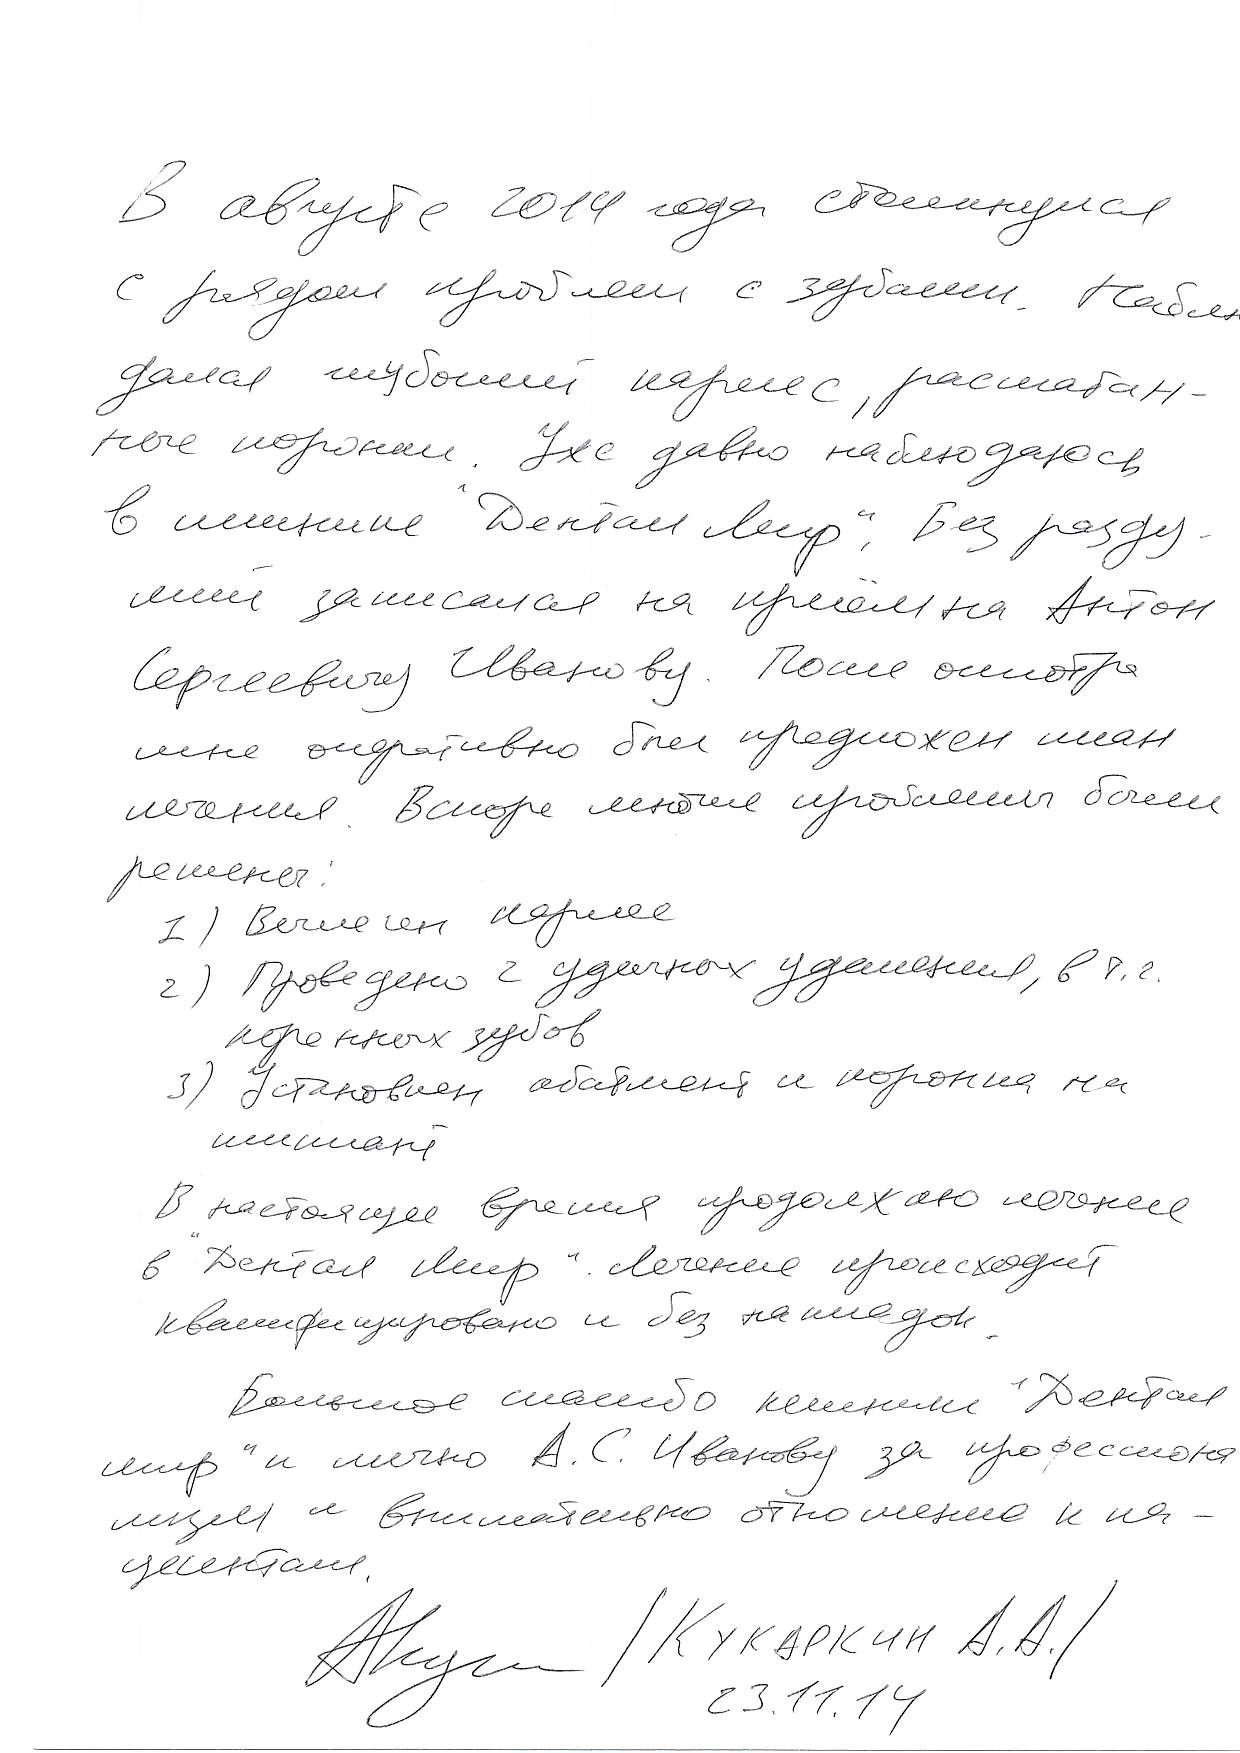 В августе 2014 года столкнулся
с рядом проблем с зубами. Наблю
дался глубокий кариес, расшатан-
ные коронки. Уже давно наблюдаюсь
в клинике "Дентал Мир". Без разду-
мий записался на приём на Антон
Сергеевичу Иванову. После осмотра
мне оперативно был предложен план
лечения. Вскоре многие проблемы были
решены:
1) Вылечен кариес
2) Проведено 2 удачных удаления, в т.ч.
коренных зубов
3) Установлен абатмент и коронка на
имплант
В настоящее время продолжаю лечение
в "Дентал Мир". Лечение происходит
квалифицировано и без накладок.
Большое спасибо клинике "Дентал
мир" и лично А.С. Иванову за профессиона
лизм и внимательно отношение к па-
циентам.
/Кукаркин А.А./
23.11.14